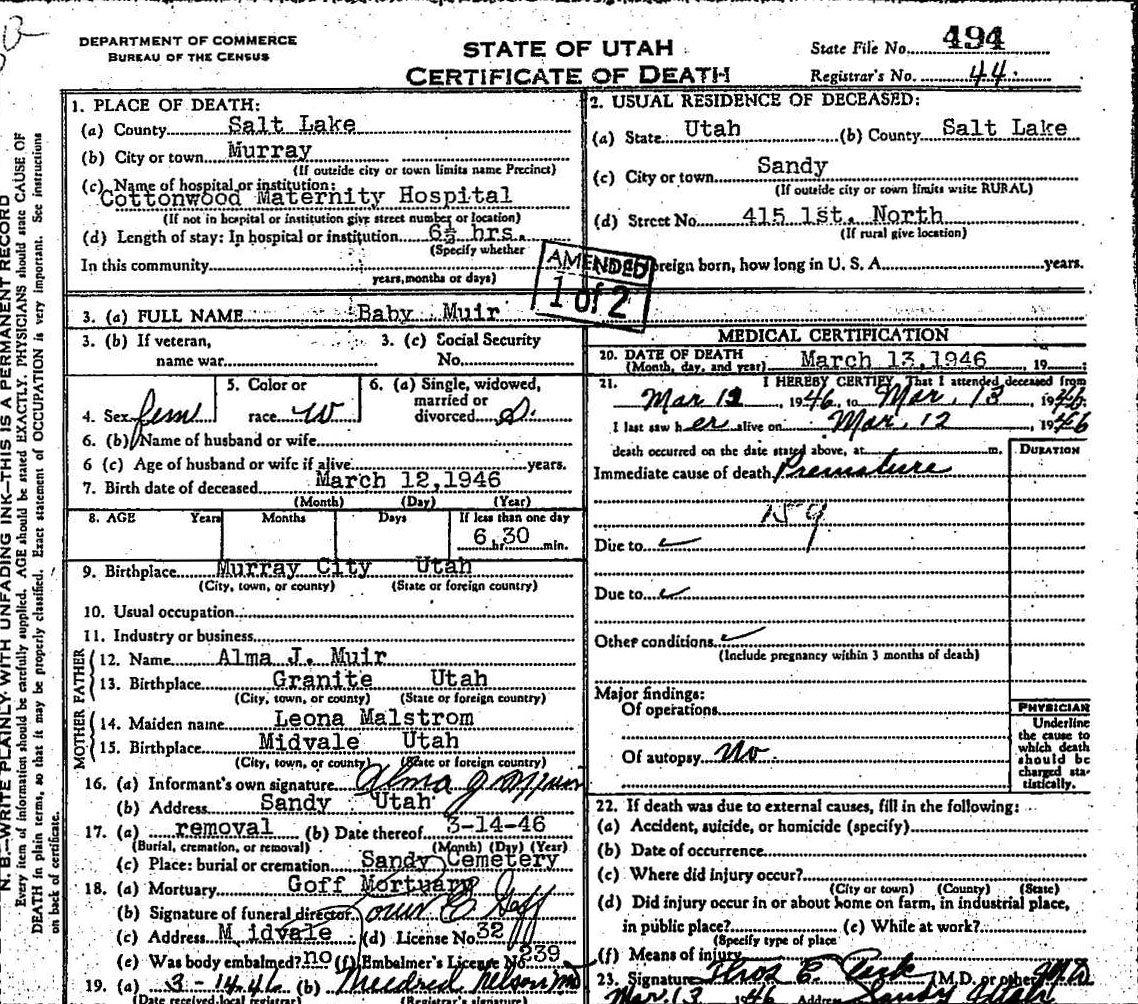 DEPARTMENT OF COMMERCE
BUREAU OF THE CENSUS
STATE OF UTAH
CERTIFICATE OF DEATH
State File No. 494
Registrar's No. 44
N. B.—WRITE PLAINLY WITH UNFADING INK—THIS IS A PERMANENT RECORD
Every item of information should be carefully supplied. AGE should be stated EXACTLY. PHYSICIANS should state CAUSE OF
DEATH in plain terms, so that it may be properly classified. Exact statement of OCCUPATION is very important. See instructions
on back of certificate.
1. PLACE OF DEATH:
(a) County Salt Lake
(b) City or town Murray
(If outside city or town limits name Precinct)
(c) Name of hospital or institution:
Cottonwood Maternity Hospital
(If not in hospital or institution give street number or location)
(d) Length of stay: In hospital or institution 6½ hrs.
(Specify whether
In this community
years, months or days)
2. USUAL RESIDENCE OF DECEASED:
(a) State Utah (b) County Salt Lake
(c) City or town Sandy
(If outside city or town limits write RURAL)
(d) Street No. 415 1st. North
(If rural give location)
foreign born, how long in U. S. A. years.
AMENDED
1 of 2
3. (a) FULL NAME Baby Muir
3. (b) If veteran,
name war
3. (c) Social Security
No.
4. Sex fem
5. Color or
race w
6. (a) Single, widowed,
married or
divorced S.
6. (b) Name of husband or wife
6 (c) Age of husband or wife if alive years.
7. Birth date of deceased March 12, 1946
(Month) (Day) (Year)
8. AGE Years Months Days If less than one day
6 hr. 30 min.
9. Birthplace Murray City Utah
(City, town, or county) (State or foreign country)
10. Usual occupation
11. Industry or business
FATHER
12. Name Alma J. Muir
13. Birthplace Granite Utah
(City, town, or county) (State or foreign country)
MOTHER
14. Maiden name Leona Malstrom
15. Birthplace Midvale Utah
(City, town, or county) (State or foreign country)
16. (a) Informant's own signature Alma J Muir
(b) Address Sandy Utah
17. (a) removal (b) Date thereof 3-14-46
(Burial, cremation, or removal) (Month) (Day) (Year)
(c) Place: burial or cremation Sandy Cemetery
18. (a) Mortuary Goff Mortuary
(b) Signature of funeral director Goff
(c) Address Midvale (d) License No. 32
(e) Was body embalmed? no (f) Embalmer's License No. 239
19. (a) 3-14-46 (b) Mildred Nelson
(Date received local registrar) (Registrar's signature)
MEDICAL CERTIFICATION
20. DATE OF DEATH March 13, 1946 19
(Month, day, and year)
21. I HEREBY CERTIFY, That I attended deceased from
Mar 12, 1946, to Mar. 13, 1946
I last saw her alive on Mar. 12, 1946
death occurred on the date stated above, at m.
DURATION
Immediate cause of death Premature
159
Due to
Due to
Other conditions
(Include pregnancy within 3 months of death)
Major findings:
Of operations
Of autopsy No
PHYSICIAN
Underline
the cause to
which death
should be
charged sta-
tistically.
22. If death was due to external causes, fill in the following:
(a) Accident, suicide, or homicide (specify)
(b) Date of occurrence
(c) Where did injury occur?
(City or town) (County) (State)
(d) Did injury occur in or about home on farm, in industrial place,
in public place? (e) While at work?
(Specify type of place
(f) Means of injury
23. Signature (M.D. or other)
Mar 13 1946 Address Sandy Utah